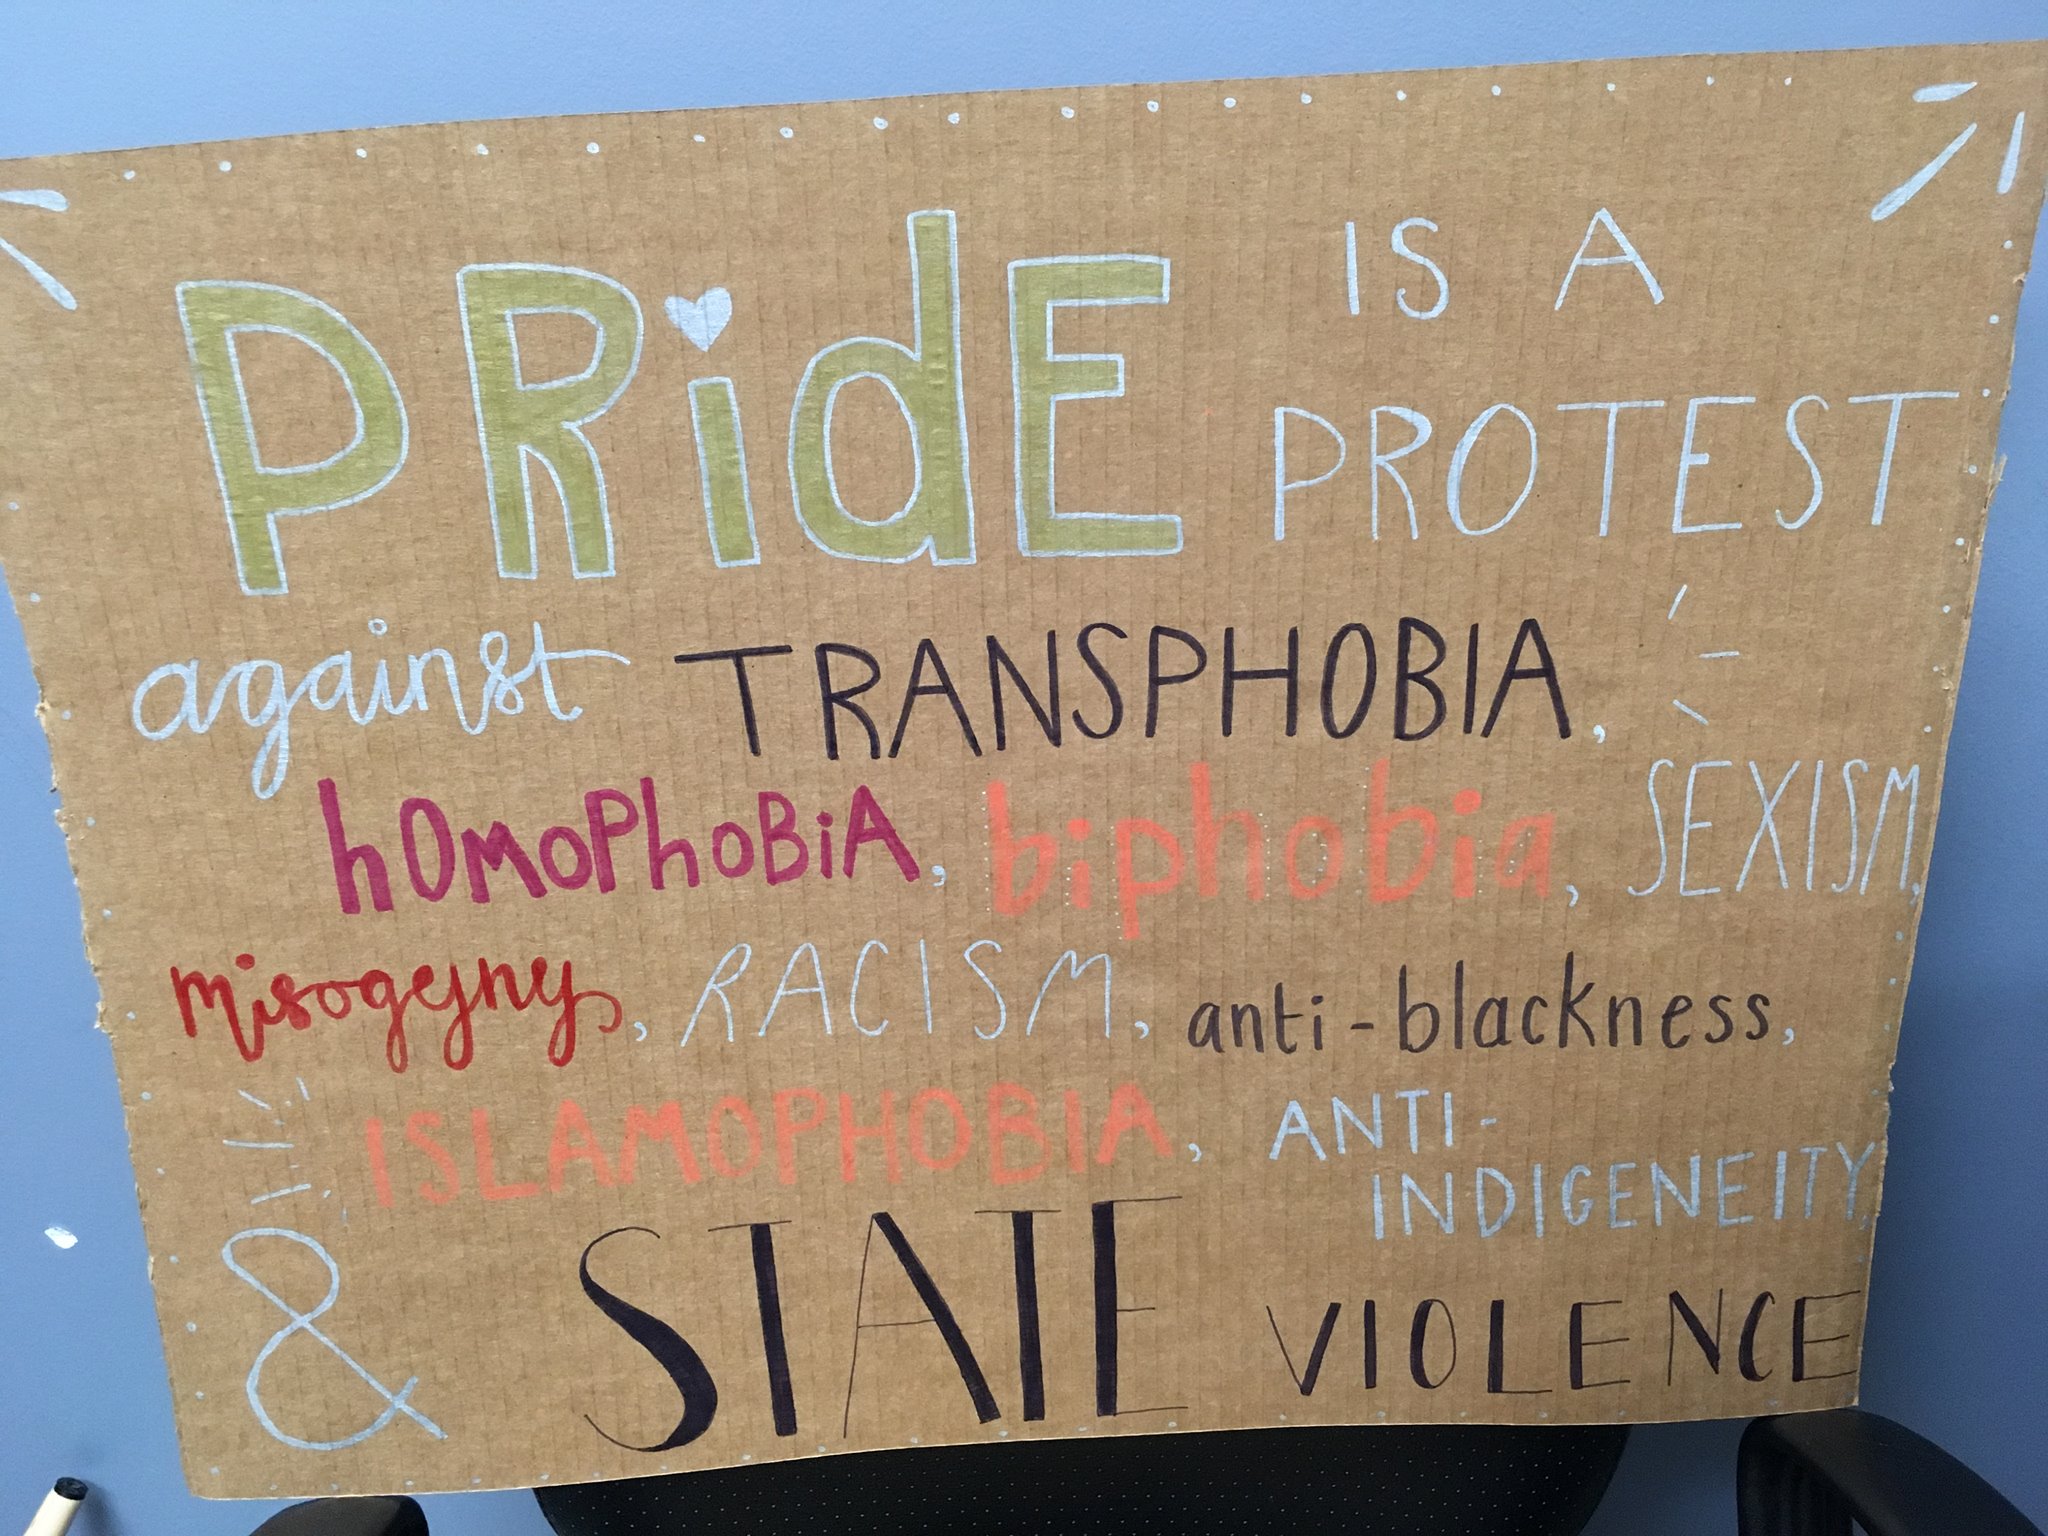 PRidE IS A
PROTEST
against TRANSPHOBIA,
hOmoPhoBiA, biphobia, SEXISM,
misogeyny, RACISM, anti-blackness,
ISLAMOPHOBIA, ANTI-
INDIGENEITY,
& STATE VIOLENCE